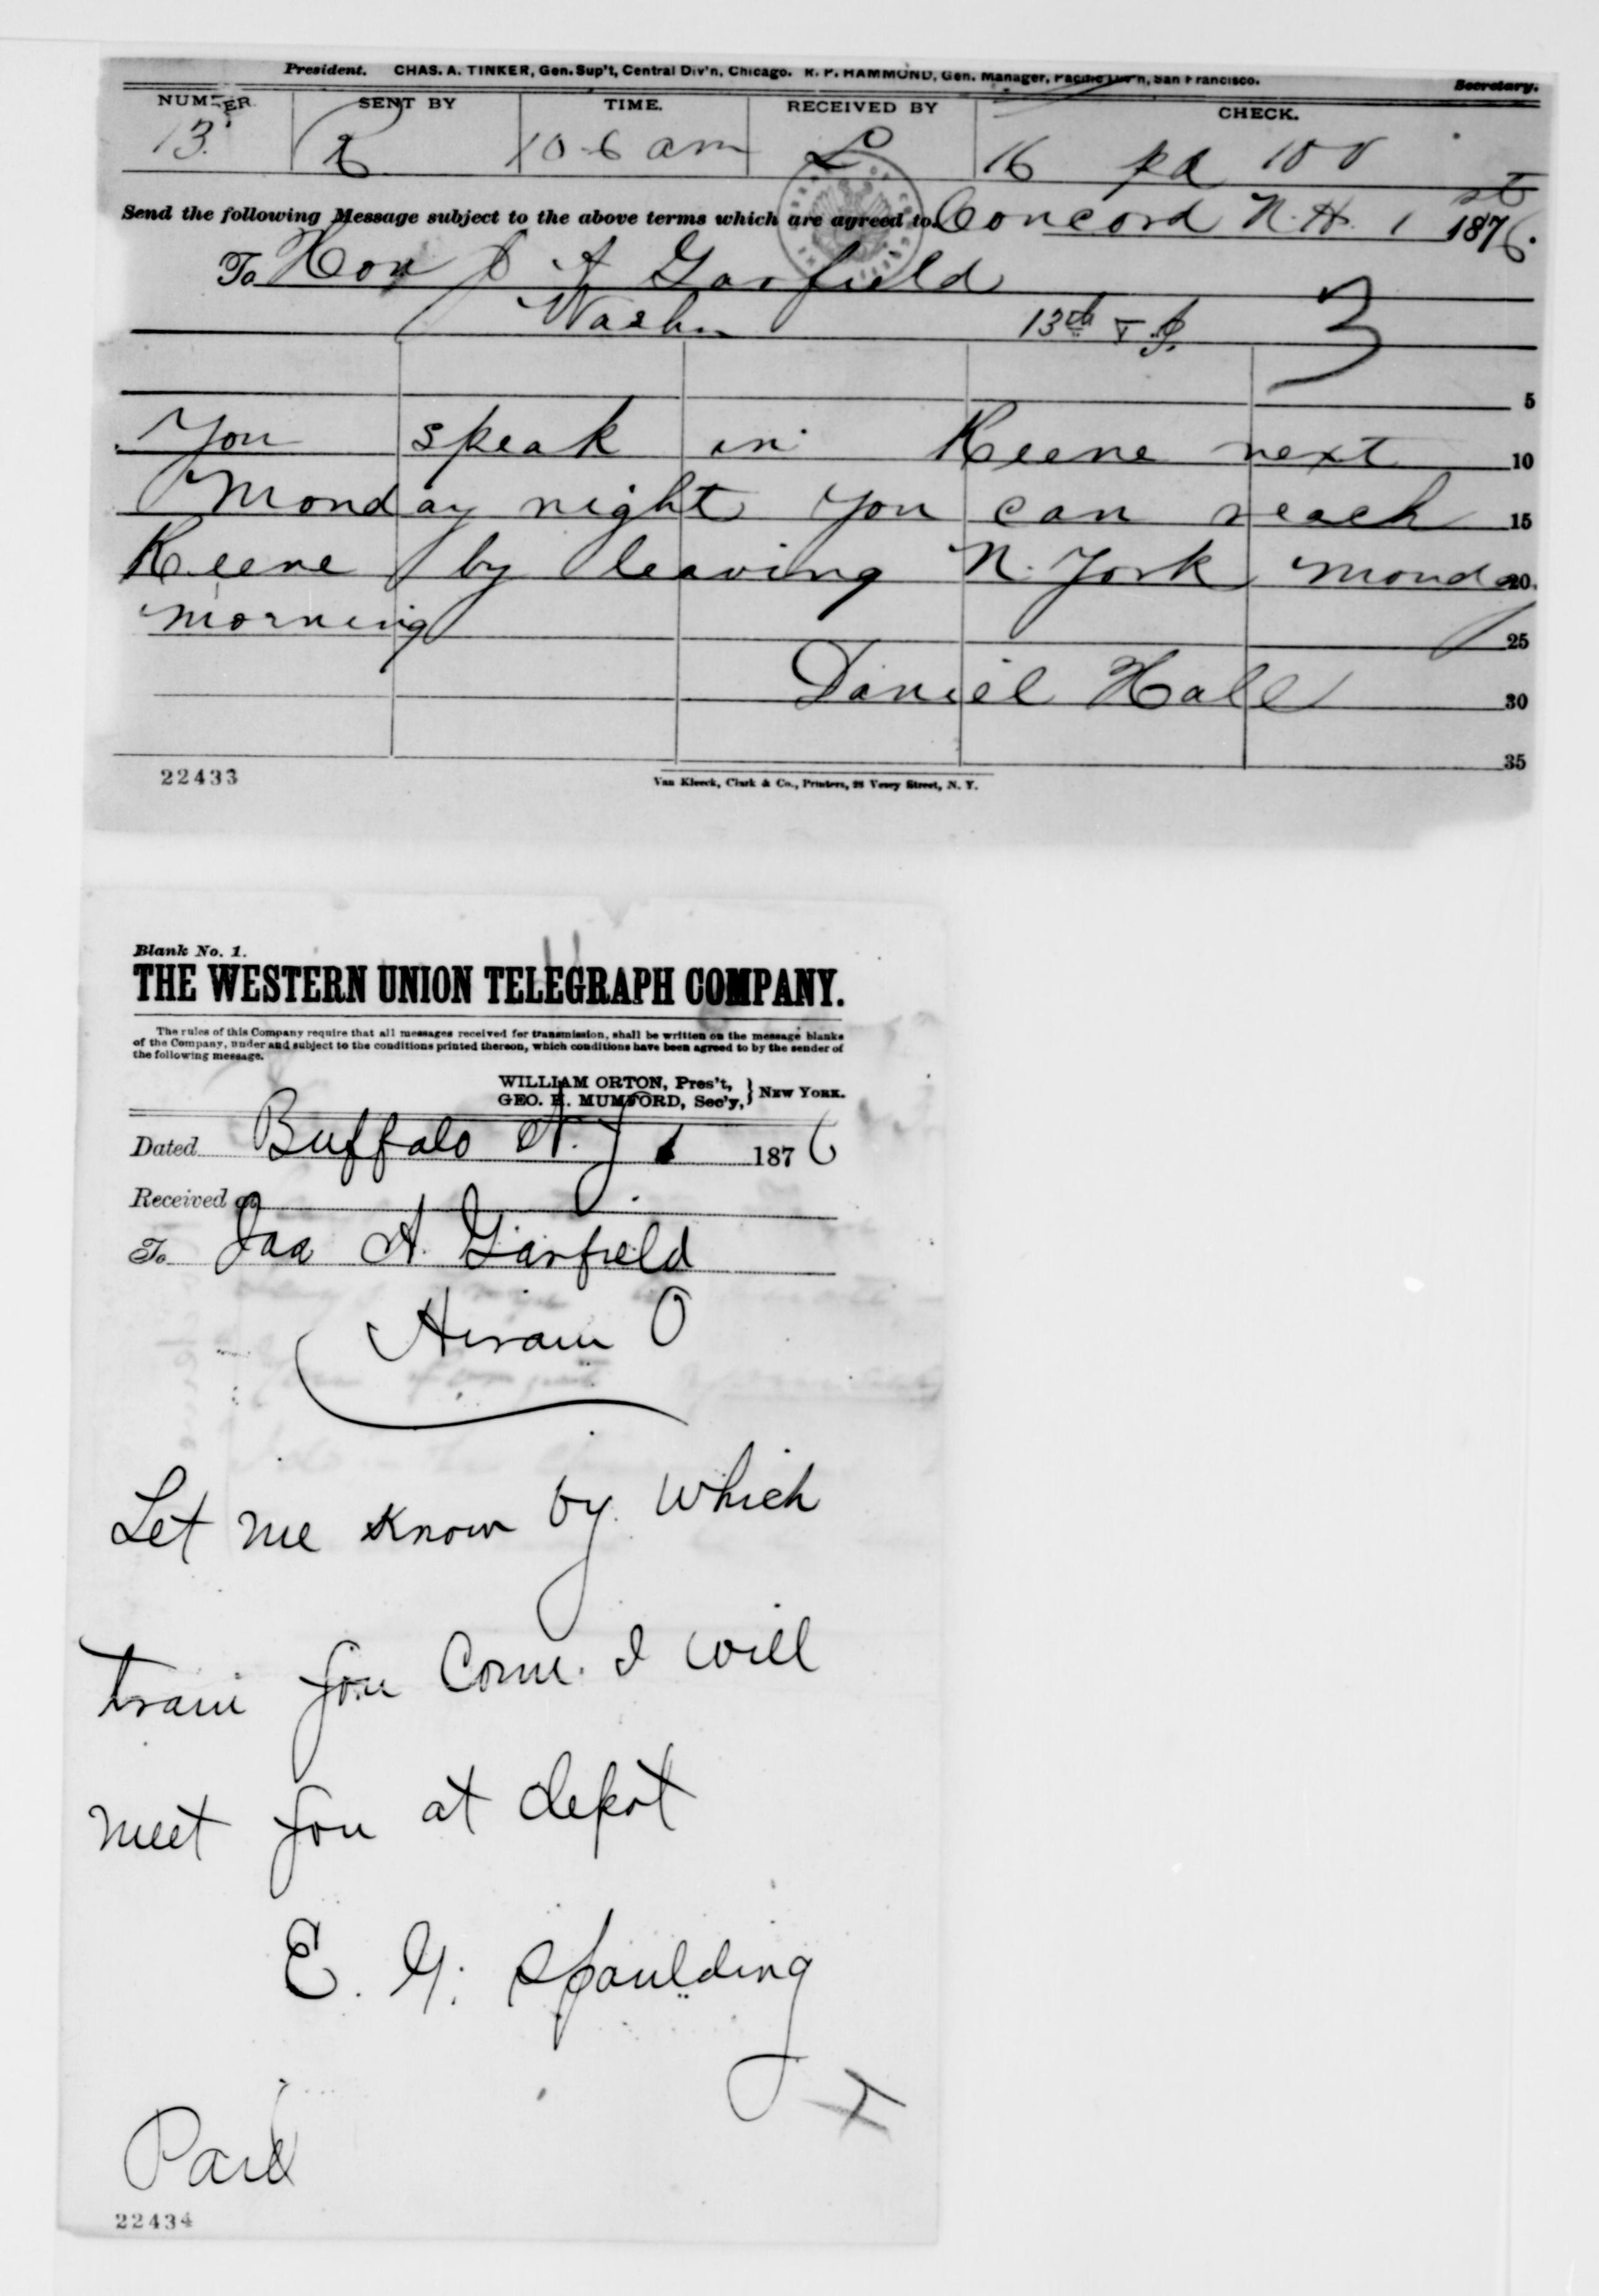 President. CHAS. A. TINKER, Gen. Sup't, Central Div'n, Chicago. R. P. HAMMOND, Gen. Manager, Pacific Div'n, San Francisco. Secretary.
NUMBER SENT BY TIME. RECEIVED BY CHECK.
13 10-6 am L 16 pd 100
Send the following Message subject to the above terms which are agreed to. Concord N.H. 1st 1876.
To Hon J A Garfield
Washn 13th & I. 3
5
You speak in Keene next 10
Monday night you can reach 15
Keene by leaving N. York Monday 20
morning 25
Daniel Hall 30
35
22433 Van Kleeck, Clark & Co., Printers, 28 Vesey Street, N. Y.
Blank No. 1.
THE WESTERN UNION TELEGRAPH COMPANY.
The rules of this Company require that all messages received for transmission, shall be written on the message blanks
of the Company, under and subject to the conditions printed thereon, which conditions have been agreed to by the sender of
the following message.
WILLIAM ORTON, Pres't,
GEO. H. MUMFORD, Sec'y, } NEW YORK.
Dated Buffalo N.Y 1 1876
Received at
To Jas A. Garfield
Hiram O
Let me know by which
train you Come. I will
meet you at depot
E. G. Spaulding
Paid
22434